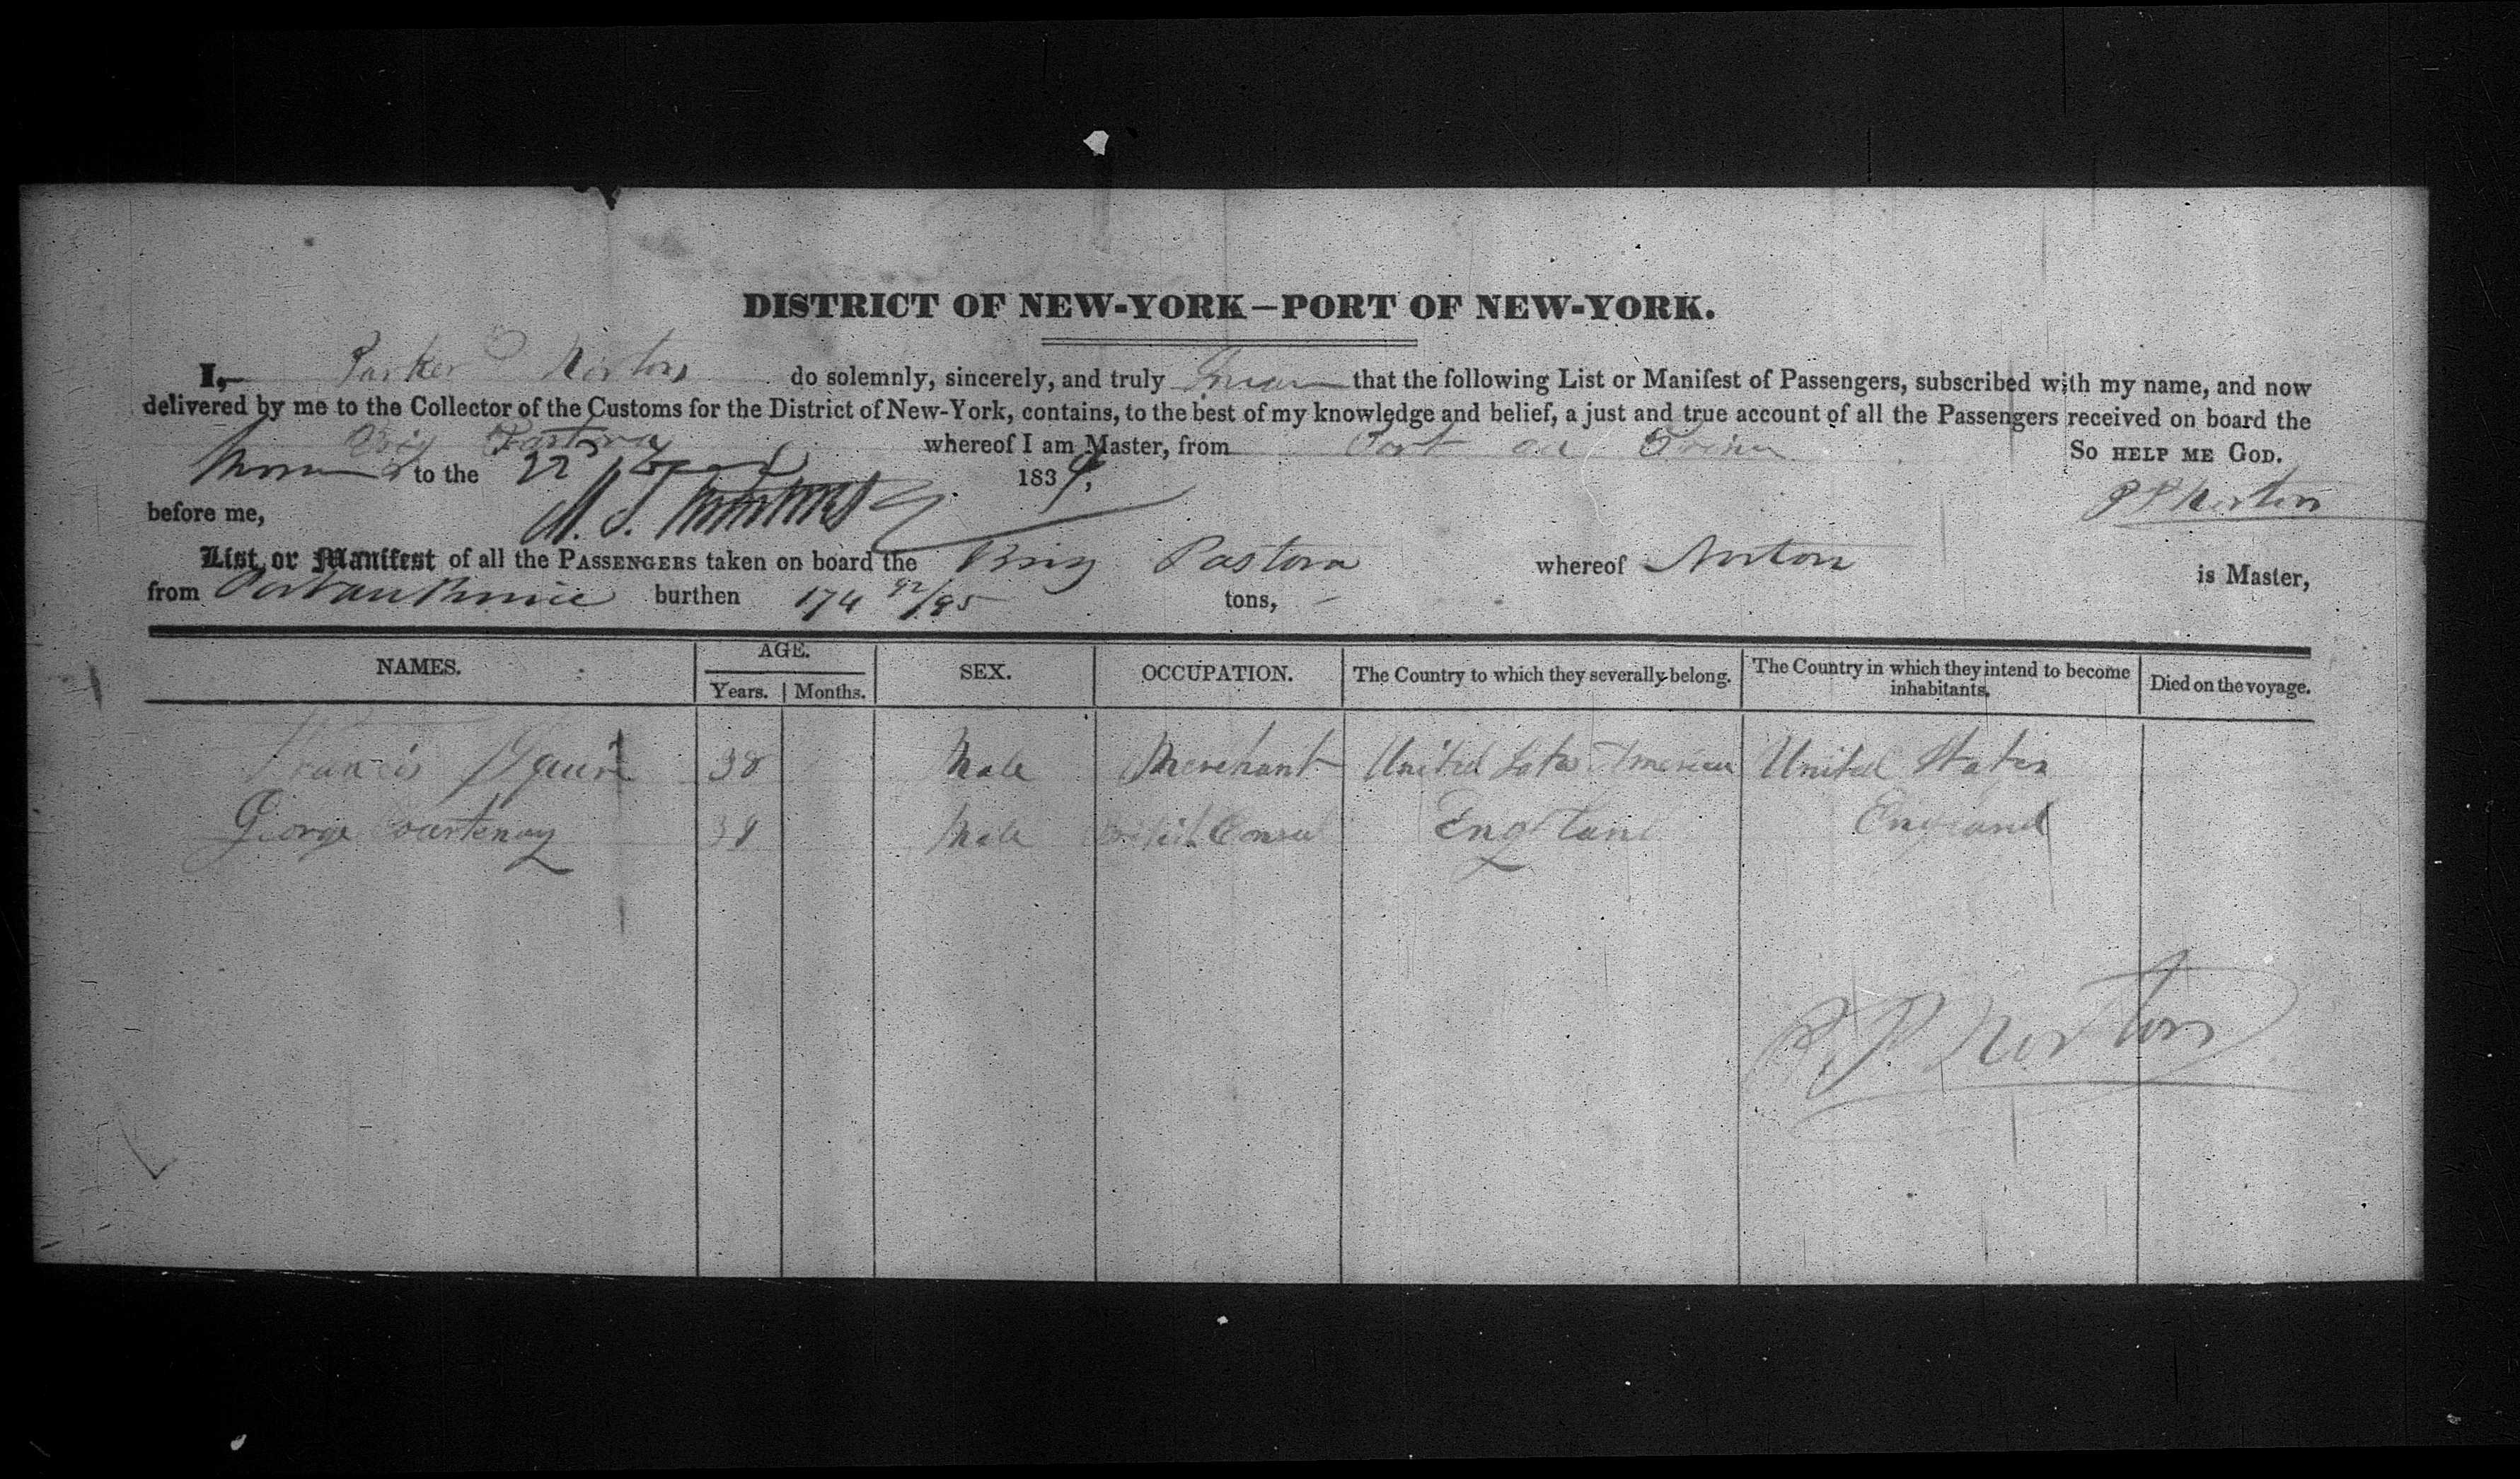 DISTRICT OF NEW-YORK—PORT OF NEW-YORK.
I, Parker P Norton do solemnly, sincerely, and truly Swear that the following List or Manifest of Passengers, subscribed with my name, and now
delivered by me to the Collector of the Customs for the District of New-York, contains, to the best of my knowledge and belief, a just and true account of all the Passengers received on board the
Brig Pastora whereof I am Master, from Port au Prince So HELP ME GOD.
Sworn to the 22 1839,
P P Norton
before me,
List or Manifest of all the PASSENGERS taken on board the Brig Pastora whereof Norton is Master,
from Port au Prince burthen 174 92/95 tons,
NAMES. AGE. SEX. OCCUPATION. The Country to which they severally belong. The Country in which they intend to become inhabitants. Died on the voyage.
Years. Months.
Francis 38 Male Merchant United States America United States
George Courtenay 38 Male British Consul England England
P P Norton